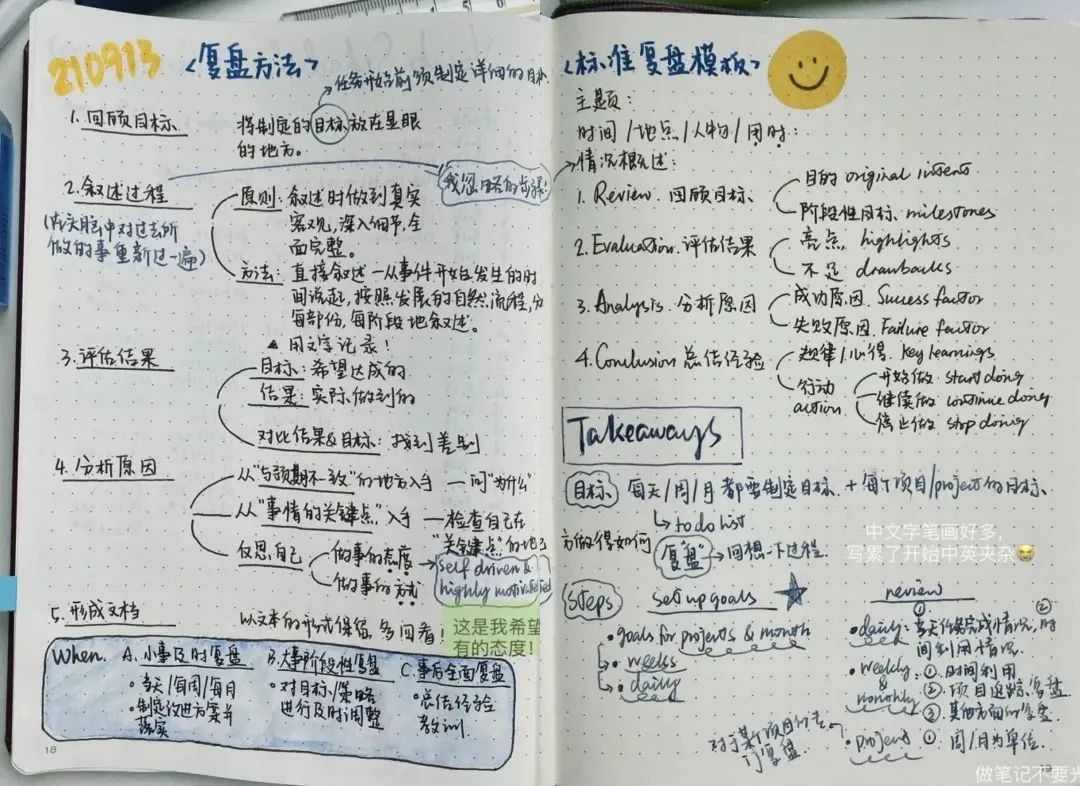 210913
<复盘方法>
任务开始前须制定详细的目标
1. 回顾目标
将制定的目标放在显眼
的地方。
我忽略的步骤!
2. 叙述过程
(在头脑中对过去所
做的事重新过一遍)
原则: 叙述时做到真实
客观, 深入细节, 全
面完整。
方法: 直接叙述—从事件开始发生的时
间说起, 按照发展的自然流程, 分
每部份, 每阶段地叙述。
▲ 用文字记录!
3. 评估结果
目标: 希望达成的
结果: 实际做到的
对比结果&目标: 找到差别
4. 分析原因
从"与预期不一致"的地方入手 — 问"为什么"
从"事情的关键点"入手 — 检查自己在
"关键点"的地
仅思自己
做事的态度
做事的方式
self driven &
highly motivated
5. 形成文档
以文本的形式保留, 多回看!
这是我希望
有的态度!
When.
A. 小事及时复盘
• 每天/每周/每月
• 制定改进方案并
落实
B. 大事阶段性复盘
• 对目标/策略
进行及时调整
C. 事后全面复盘
• 总结经验
教训
18
<标准复盘模板>
主题:
时间/地点/人物/用时:
情况概述:
1. Review. 回顾目标
目的 original intents
阶段性目标. milestones
2. Evaluation. 评估结果
亮点. highlights
不足 drawbacks
3. Analysis. 分析原因
成功原因. Success factor
失败原因. Failure factor
4. Conclusion 总结经验
规律/心得. key learnings
行动
action
开始做 start doing
继续做 continue doing
停止做 stop doing
Takeaways
目标 每天/周/月都要制定目标 + 每个项目/project的目标.
to do list
中文字笔画好多,
写累了开始中英夹杂😭
方做得如何
"复盘" → 回想一下过程.
Steps
set up goals
• goals for projects & month
• weeks
• daily
review
• daily: ① 每天任务完成情况, ② 时
间利用情况.
• weekly
&
monthly
① 时间利用
② 项目追踪、复盘
③ 其他方面的复盘
• project ① 周/月为单位.
对于某个项目的
复盘.
做笔记不要光